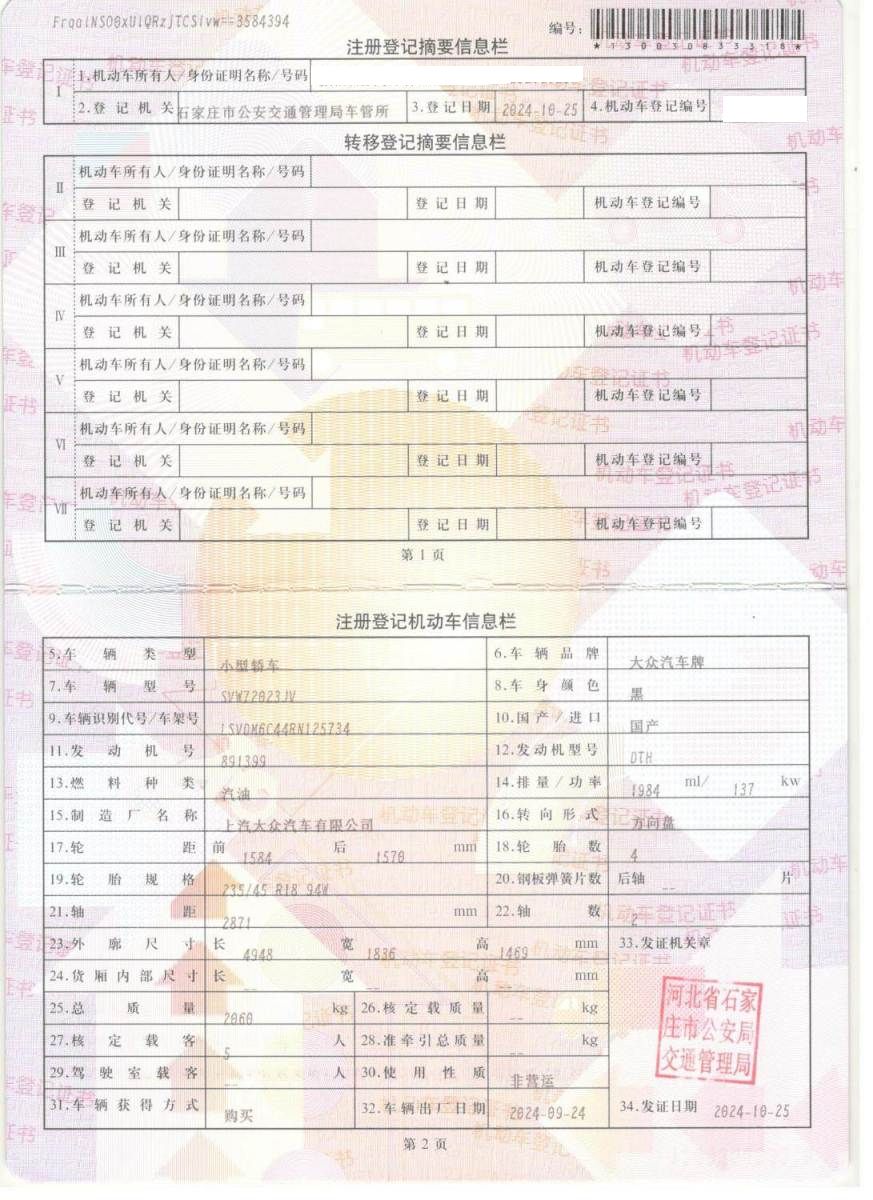 FrqalNSO@xUlQRzjTCSivw==3584394
编号:
*130030833318*
注册登记摘要信息栏
I 1.机动车所有人/身份证明名称/号码
2.登记机关 石家庄市公安交通管理局车管所 3.登记日期 2024-10-25 4.机动车登记编号
转移登记摘要信息栏
II 机动车所有人/身份证明名称/号码
登记机关 登记日期 机动车登记编号
III 机动车所有人/身份证明名称/号码
登记机关 登记日期 机动车登记编号
IV 机动车所有人/身份证明名称/号码
登记机关 登记日期 机动车登记编号
V 机动车所有人/身份证明名称/号码
登记机关 登记日期 机动车登记编号
VI 机动车所有人/身份证明名称/号码
登记机关 登记日期 机动车登记编号
VII 机动车所有人/身份证明名称/号码
登记机关 登记日期 机动车登记编号
第1页
注册登记机动车信息栏
5.车辆类型 小型轿车 6.车辆品牌 大众汽车牌
7.车辆型号 SVW72023JV 8.车身颜色 黑
9.车辆识别代号/车架号 LSV0M6C44RN125734 10.国产/进口 国产
11.发动机号 891399 12.发动机型号 DTH
13.燃料种类 汽油 14.排量/功率 1984 ml/ 137 kw
15.制造厂名称 上汽大众汽车有限公司 16.转向形式 方向盘
17.轮距 前 1584 后 1570 mm 18.轮胎数 4
19.轮胎规格 235/45 R18 94W 20.钢板弹簧片数 后轴 -- 片
21.轴距 2871 mm 22.轴数 2
23.外廓尺寸 长 4948 宽 1836 高 1469 mm 33.发证机关章
24.货厢内部尺寸 长 -- 宽 -- 高 -- mm
25.总质量 2060 kg 26.核定载质量 -- kg
27.核定载客 5 人 28.准牵引总质量 -- kg
29.驾驶室载客 -- 人 30.使用性质 非营运
河北省石家
庄市公安局
交通管理局
31.车辆获得方式 购买 32.车辆出厂日期 2024-09-24 34.发证日期 2024-10-25
第2页